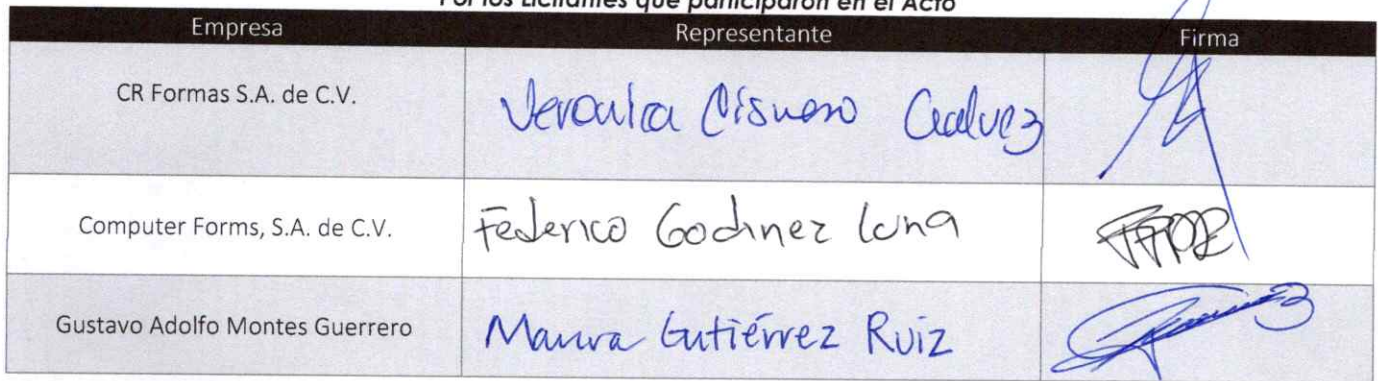 Por los Licitantes que participaron en el Acto
Empresa Representante Firma
CR Formas S.A. de C.V. Veronica Cisnero Galvez
Computer Forms, S.A. de C.V. Federico Godinez Luna
Gustavo Adolfo Montes Guerrero Maura Gutiérrez Ruiz